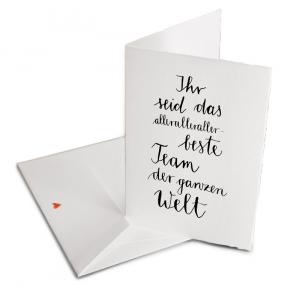 Ihr
seid das
alleralleraller-
beste
Team
der ganzen
Welt